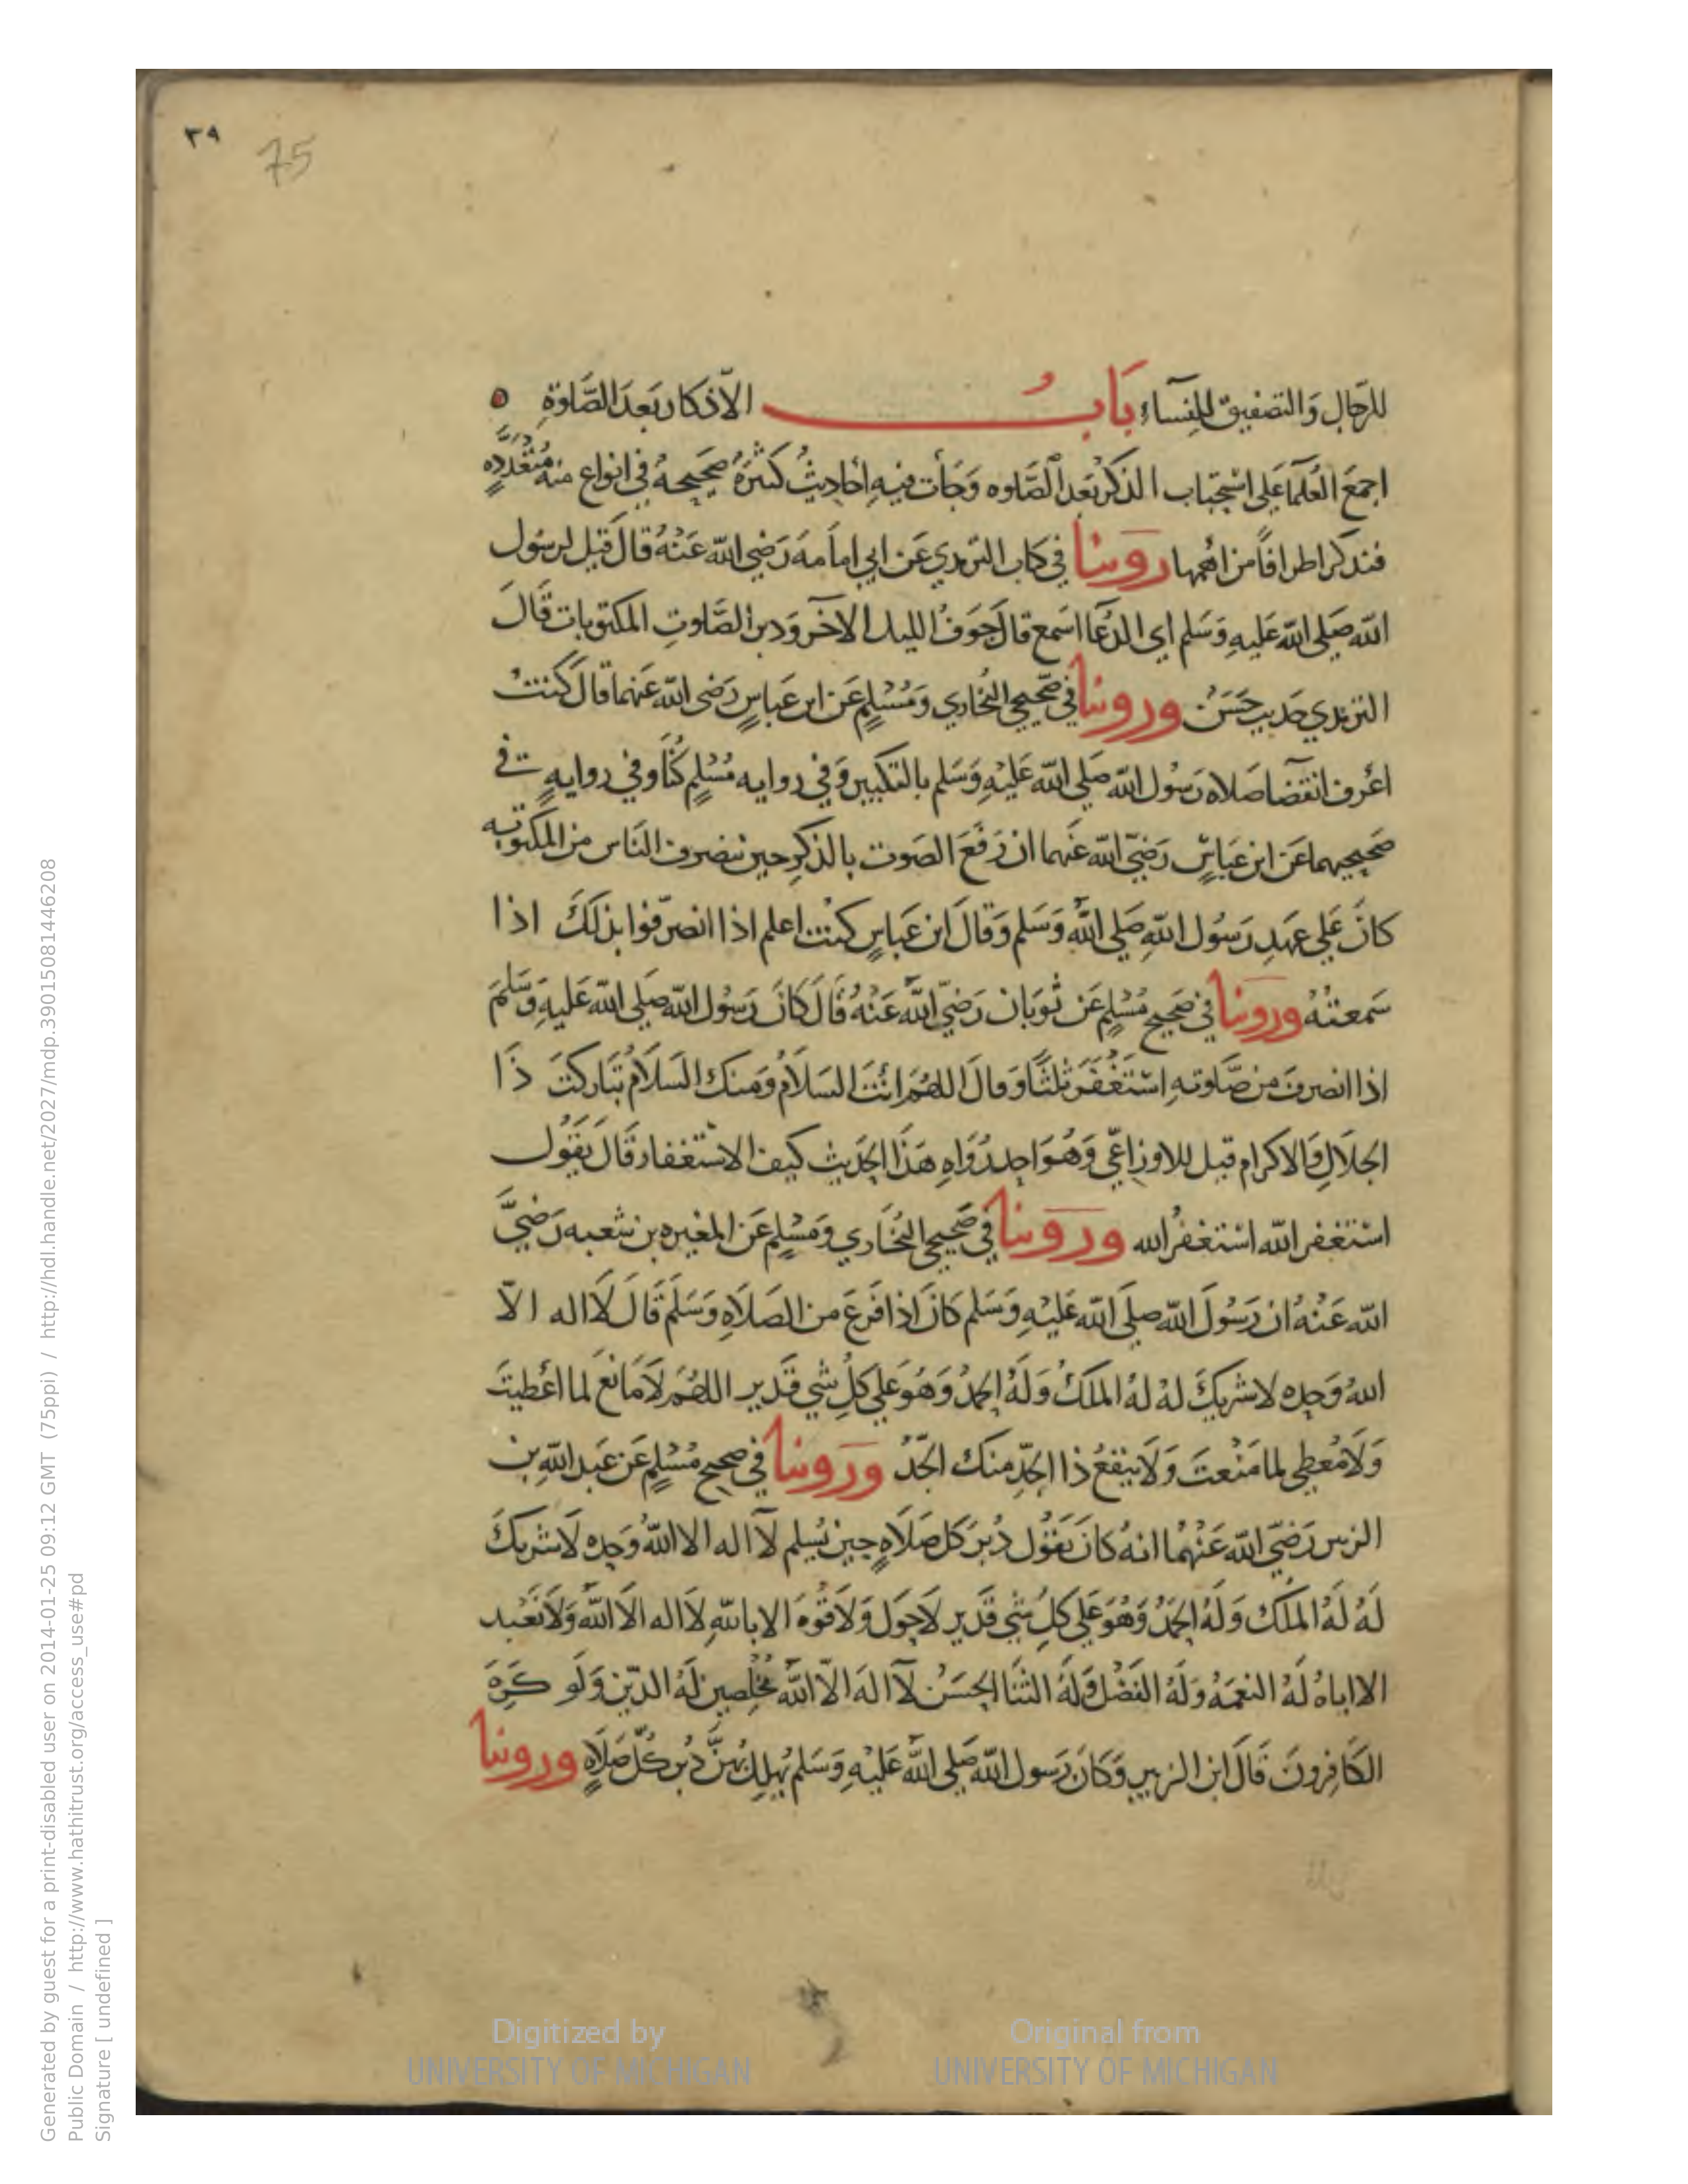 ٣٩
75
للرجال والتصفيق للنساء باب الأذكار بعد الصلوة
اجمع العلما على استحباب الذكر بعد الصلوه وجأت فيه احاديث كثيرة صحيحة في انواع منه متعدده
فنذكر اطرافا من اهمها روينا في كتاب الترمذي عن ابي امامه رضي الله عنه قال قيل لرسول
الله صلى الله عليه وسلم اي الدعا اسمع قال جوف الليل الآخر ودبر الصلوت المكتوبات قال
الترمذي حديث حسن وروينا في صحيحي البخاري ومسلم عن ابن عباس رضى الله عنهما قال كنت
اعرف انقضا صلاه رسول الله صلي الله عليه وسلم بالتكبير وفي روايه مسلم كنا وفي روايه في
صحيحيهما عن ابن عباس رضي الله عنهما ان رفع الصوت بالذكر حين ينصرف الناس من المكتوبه
كان علي عهد رسول الله صلي الله وسلم وقال ابن عباس كنت اعلم اذا انصرفوا بذلك اذا
سمعته وروينا في صحيح مسلم عن ثوبان رضي الله عنه قال كان رسول الله صلي الله عليه وسلم
اذا انصرف من صلوته استغفر ثلثا وقال اللهم انت السلام ومنك السلام تباركت ذا
الجلال والاكرام قيل للاوزاعي وهو احد رواه هذا الحديث كيف الاستغفار قال يقول
استغفر الله استغفر الله وروينا في صحيحي البخاري ومسلم عن المغيره بن شعبه رضي
الله عنه ان رسول الله صلى الله عليه وسلم كان اذا فرغ من الصلاه وسلم قال لا اله الا
الله وحده لا شريك له له الملك وله الحمد وهو علي كل شي قدير اللهم لا مانع لما اعطيت
ولا معطي لما منعت ولا ينفع ذا الجد منك الجد وروينا في صحيح مسلم عن عبد الله بن
الزبير رضي الله عنهما انه كان يقول دبر كل صلاه حين يسلم لا اله الا الله وحده لا شريك
له له الملك وله الحمد وهو علي كل شي قدير لا حول ولا قوه الا بالله لا اله الا الله ولا نعبد
الا اياه له النعمه وله الفضل وله الثنا الحسن لا اله الا الله مخلصين له الدين ولو كره
الكافرون قال ابن الزبير وكان رسول الله صلي الله عليه وسلم يهلل بهن دبر كل صلاه وروينا
Digitized by
UNIVERSITY OF MICHIGAN
Original from
UNIVERSITY OF MICHIGAN
Generated by guest for a print-disabled user on 2014-01-25 09:12 GMT (75ppi) / http://hdl.handle.net/2027/mdp.39015081446208
Public Domain / http://www.hathitrust.org/access_use#pd
Signature [ undefined ]